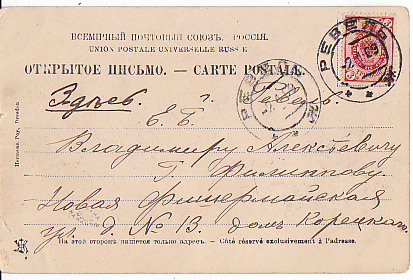 ВСЕМІРНЫЙ ПОЧТОВЫЙ СОЮЗЪ. РОССІЯ.
UNION POSTALE UNIVERSELLE RUSSIE
ОТКРЫТОЕ ПИСЬМО. — CARTE POSTALE.
РЕВЕЛЬ
РЕВЕЛЬ
Здѣсь. г. Ревель.
Е. В.
Владимиру Алексѣевичу
Г. Филиппову.
Новая
ул. д. № 13. домъ Корецкаго
На этой сторонѣ пишется только адресъ. — Côté réservé exclusivement à l'adresse.